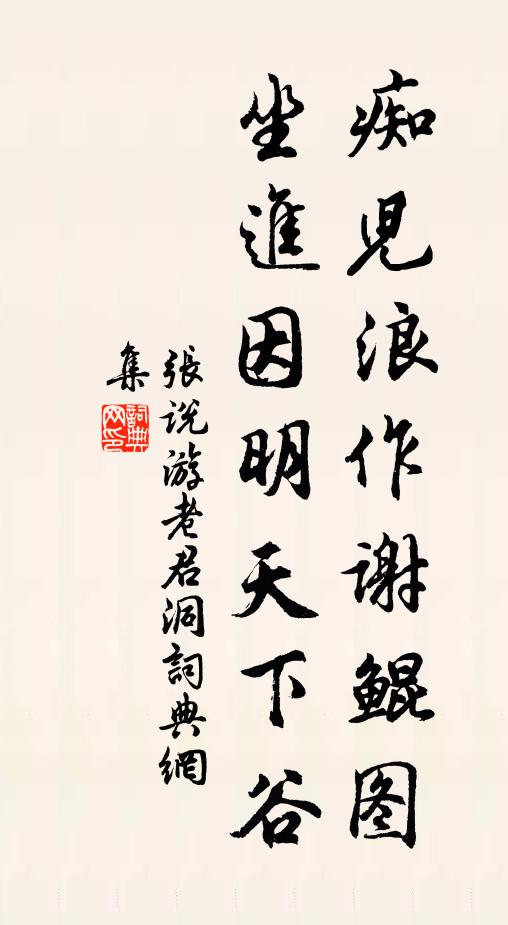 痴児浪作谢鲲图
坐進因明天下谷
張说游老君洞詞典網
集
詞典网印